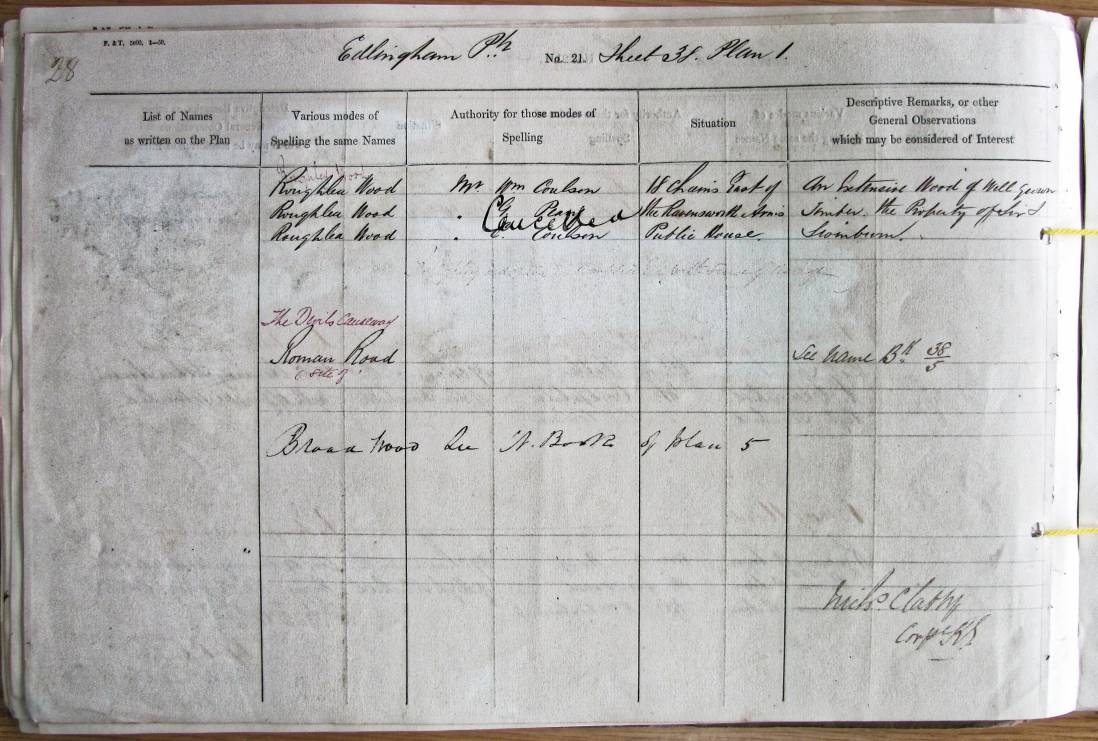 F. & T. 5000. 3—50.
28
Edlingham Ph No. 21. Sheet 38. Plan 1.
List of Names
as written on the Plan
Various modes of
Spelling the same Names
Authority for those modes of
Spelling
Situation
Descriptive Remarks, or other
General Observations
which may be considered of Interest
Roughlea Wood Mr. Wm Coulson 18 Chains East of An Extensive Wood of Well Grown
Roughlea Wood Cancelled the Ravensworth Arms Timber. the Property of Sir J
Roughlea Wood Coulson Public House. Swinburn.
The Devils Causeway
Roman Road See Name Bk 38/5
(Site of)
Broad Wood See N. Book of plan 5
Michl. Clabby
Corpl RE